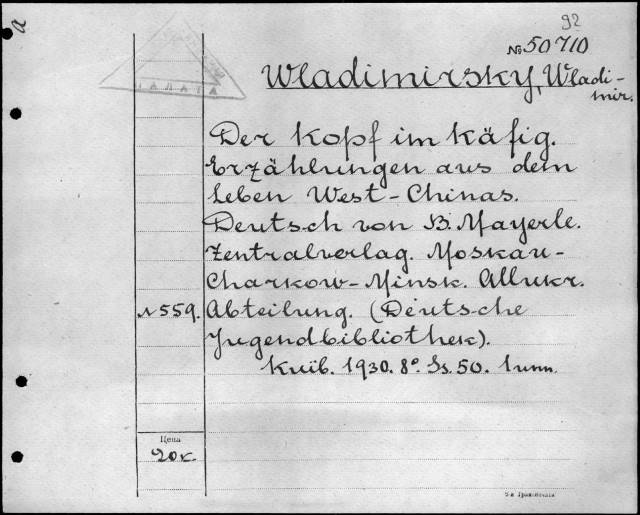 92
a
№ 50710
Wladimirsky, Wladi-
mir.
Der Kopf im Käfig.
Erzählungen aus dem
Leben West-Chinas.
Deutsch von B. Mayerle.
Zentralverlag. Moskau-
Charkow-Minsk. Allukr.
N 559. Abteilung. (Deutsche
Jugendbibliothek).
Київ. 1930. 8°. Ss. 50. 1 илл.
Цена
20 к.
ПАЛАТА